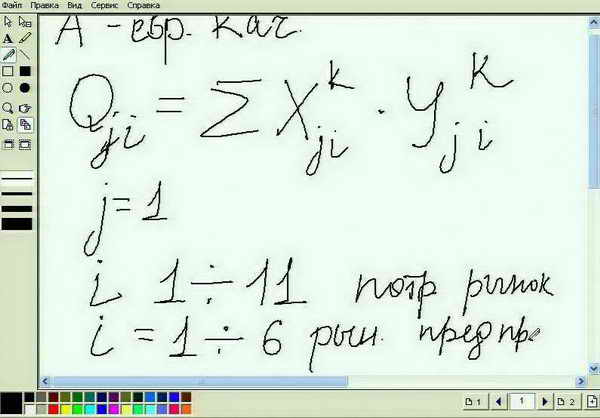 Файл Правка Вид Сервис Справка
А - евр. кач.
Q_ji = Σ X^k_ji · y^k_ji
j = 1
i 1 ÷ 11 потр рынок
i = 1 ÷ 6 рын. предпр
1 1 2